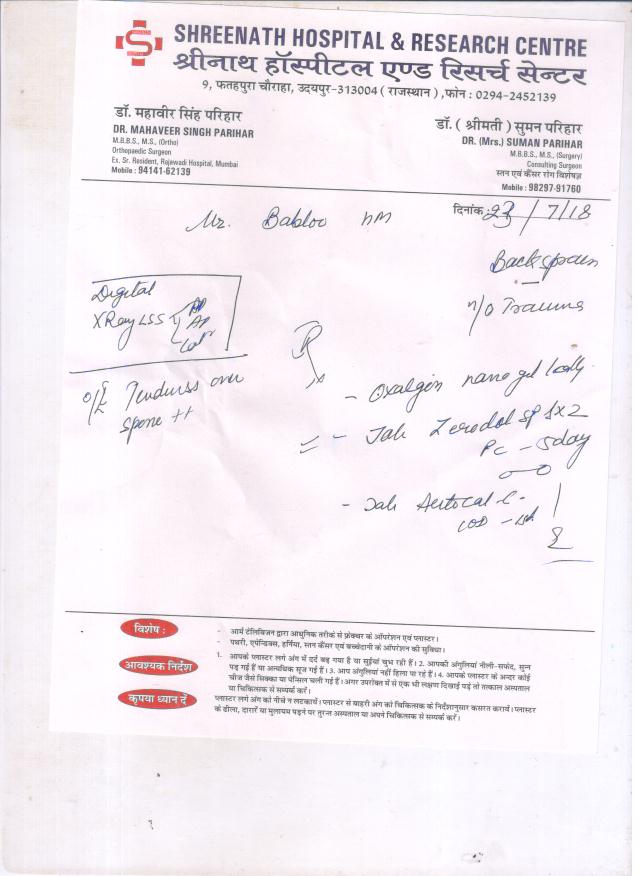 SHREENATH HOSPITAL & RESEARCH CENTRE
श्रीनाथ हॉस्पीटल एण्ड रिसर्च सेन्टर
9, फतहपुरा चौराहा, उदयपुर-313004 ( राजस्थान ) ,फोन : 0294-2452139
डॉ. महावीर सिंह परिहार
DR. MAHAVEER SINGH PARIHAR
M.B.B.S., M.S., (Ortho)
Orthopaedic Surgeon
Ex. Sr. Resident, Rajawadi Hospital, Mumbai
Mobile : 94141-62139
डॉ. ( श्रीमती ) सुमन परिहार
DR. (Mrs.) SUMAN PARIHAR
M.B.B.S., M.S., (Surgery)
Consulting Surgeon
स्तन एवं कैंसर रोग विशेषज्ञ
Mobile : 98297-91760
दिनांक : 23 / 7/18
Mr. Babloo
Back spain
n/o Trauma
Digital
X Ray LSS AP
Lat
O/E Tenderness over
spine ++
R
- Oxalgin nano gel locally
- Tab Zerodol sp 1x2
PC - 5day
- Tab
विशेष :
- आर्म टेलिविजन द्वारा आधुनिक तरीके से फ्रेक्चर के ऑपरेशन एवं प्लास्टर।
- पथरी, एपेन्डिक्स, हर्निया, स्तन कैंसर एवं बच्चेदानी के ऑपरेशन की सुविधा।
आवश्यक निर्देश
1. आपके प्लास्टर लगे अंग में दर्द बढ़ गया है या सुईयां चुभ रही हैं। 2. आपकी अंगुलियां नीली-सफेद, सुन्न
पड़ गई हैं या अत्यधिक सूज गई हैं। 3. आप अंगुलियां नहीं हिला पा रहे हैं। 4. आपके प्लास्टर के अन्दर कोई
चीज जैसे सिक्का या पेन्सिल चली गई हैं। अगर उपरोक्त में से एक भी लक्षण दिखाई पड़े तो तत्काल अस्पताल
या चिकित्सक से सम्पर्क करें।
कृपया ध्यान दें
प्लास्टर लगे अंग को नीचे न लटकायें। प्लास्टर से बाहरी अंग को चिकित्सक के निर्देशानुसार कसरत करायें। प्लास्टर
के ढीला, दारारें या मुलायम पड़ने पर तुरन्त अस्पताल या अपने चिकित्सक से सम्पर्क करें।